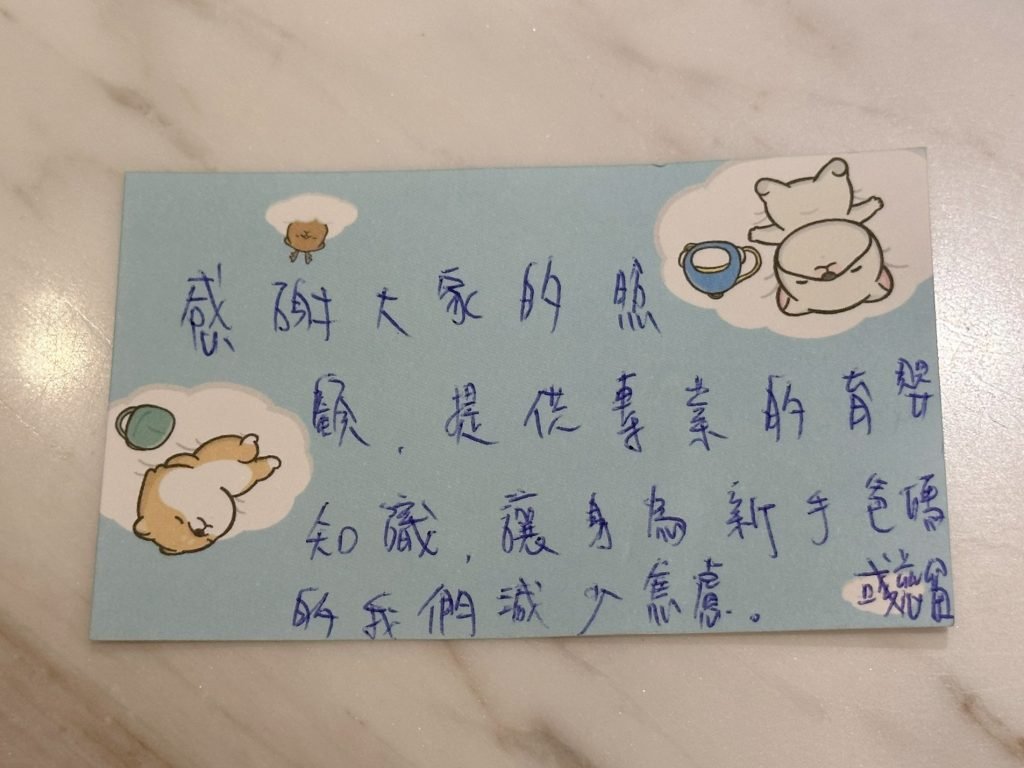 感謝大家的照
顧，提供專業的育嬰
知識，讓身為新手爸媽
的我們減少焦慮。